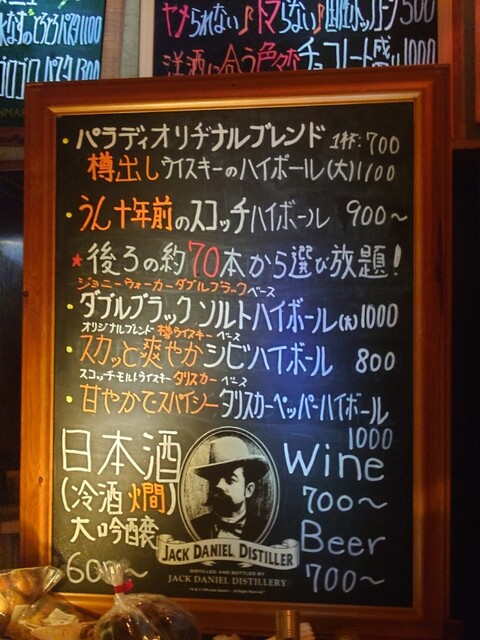 ヤメられない♪トマらない♪国産ポップコーン500
洋酒に合う色々ホ チョコレート盛り1000
なすのとろとろパスタ1100
ゴロゴロパスタ1300
・パラディオリヂナルブレンド 1杯:700
樽出しウイスキーのハイボール(大)1100
・うん十年前のスコッチハイボール 900~
★後ろの約70本から選び放題!
ジョニーウォーカーダブルブラックベース
・ダブルブラックソルトハイボール(大)1000
オリジナルブレンド樽ウイスキーベース
・スカッと爽やかシビハイボール 800
スコッチモルトウイスキータリスカーベース
・甘やかでスパイシータリスカーペッパーハイボール
1000
日本酒
(冷酒 燗)
大吟醸
600~
Wine
700~
Beer
700~
JACK DANIEL DISTILLER
DISTILLED AND BOTTLED BY
JACK DANIEL DISTILLERY